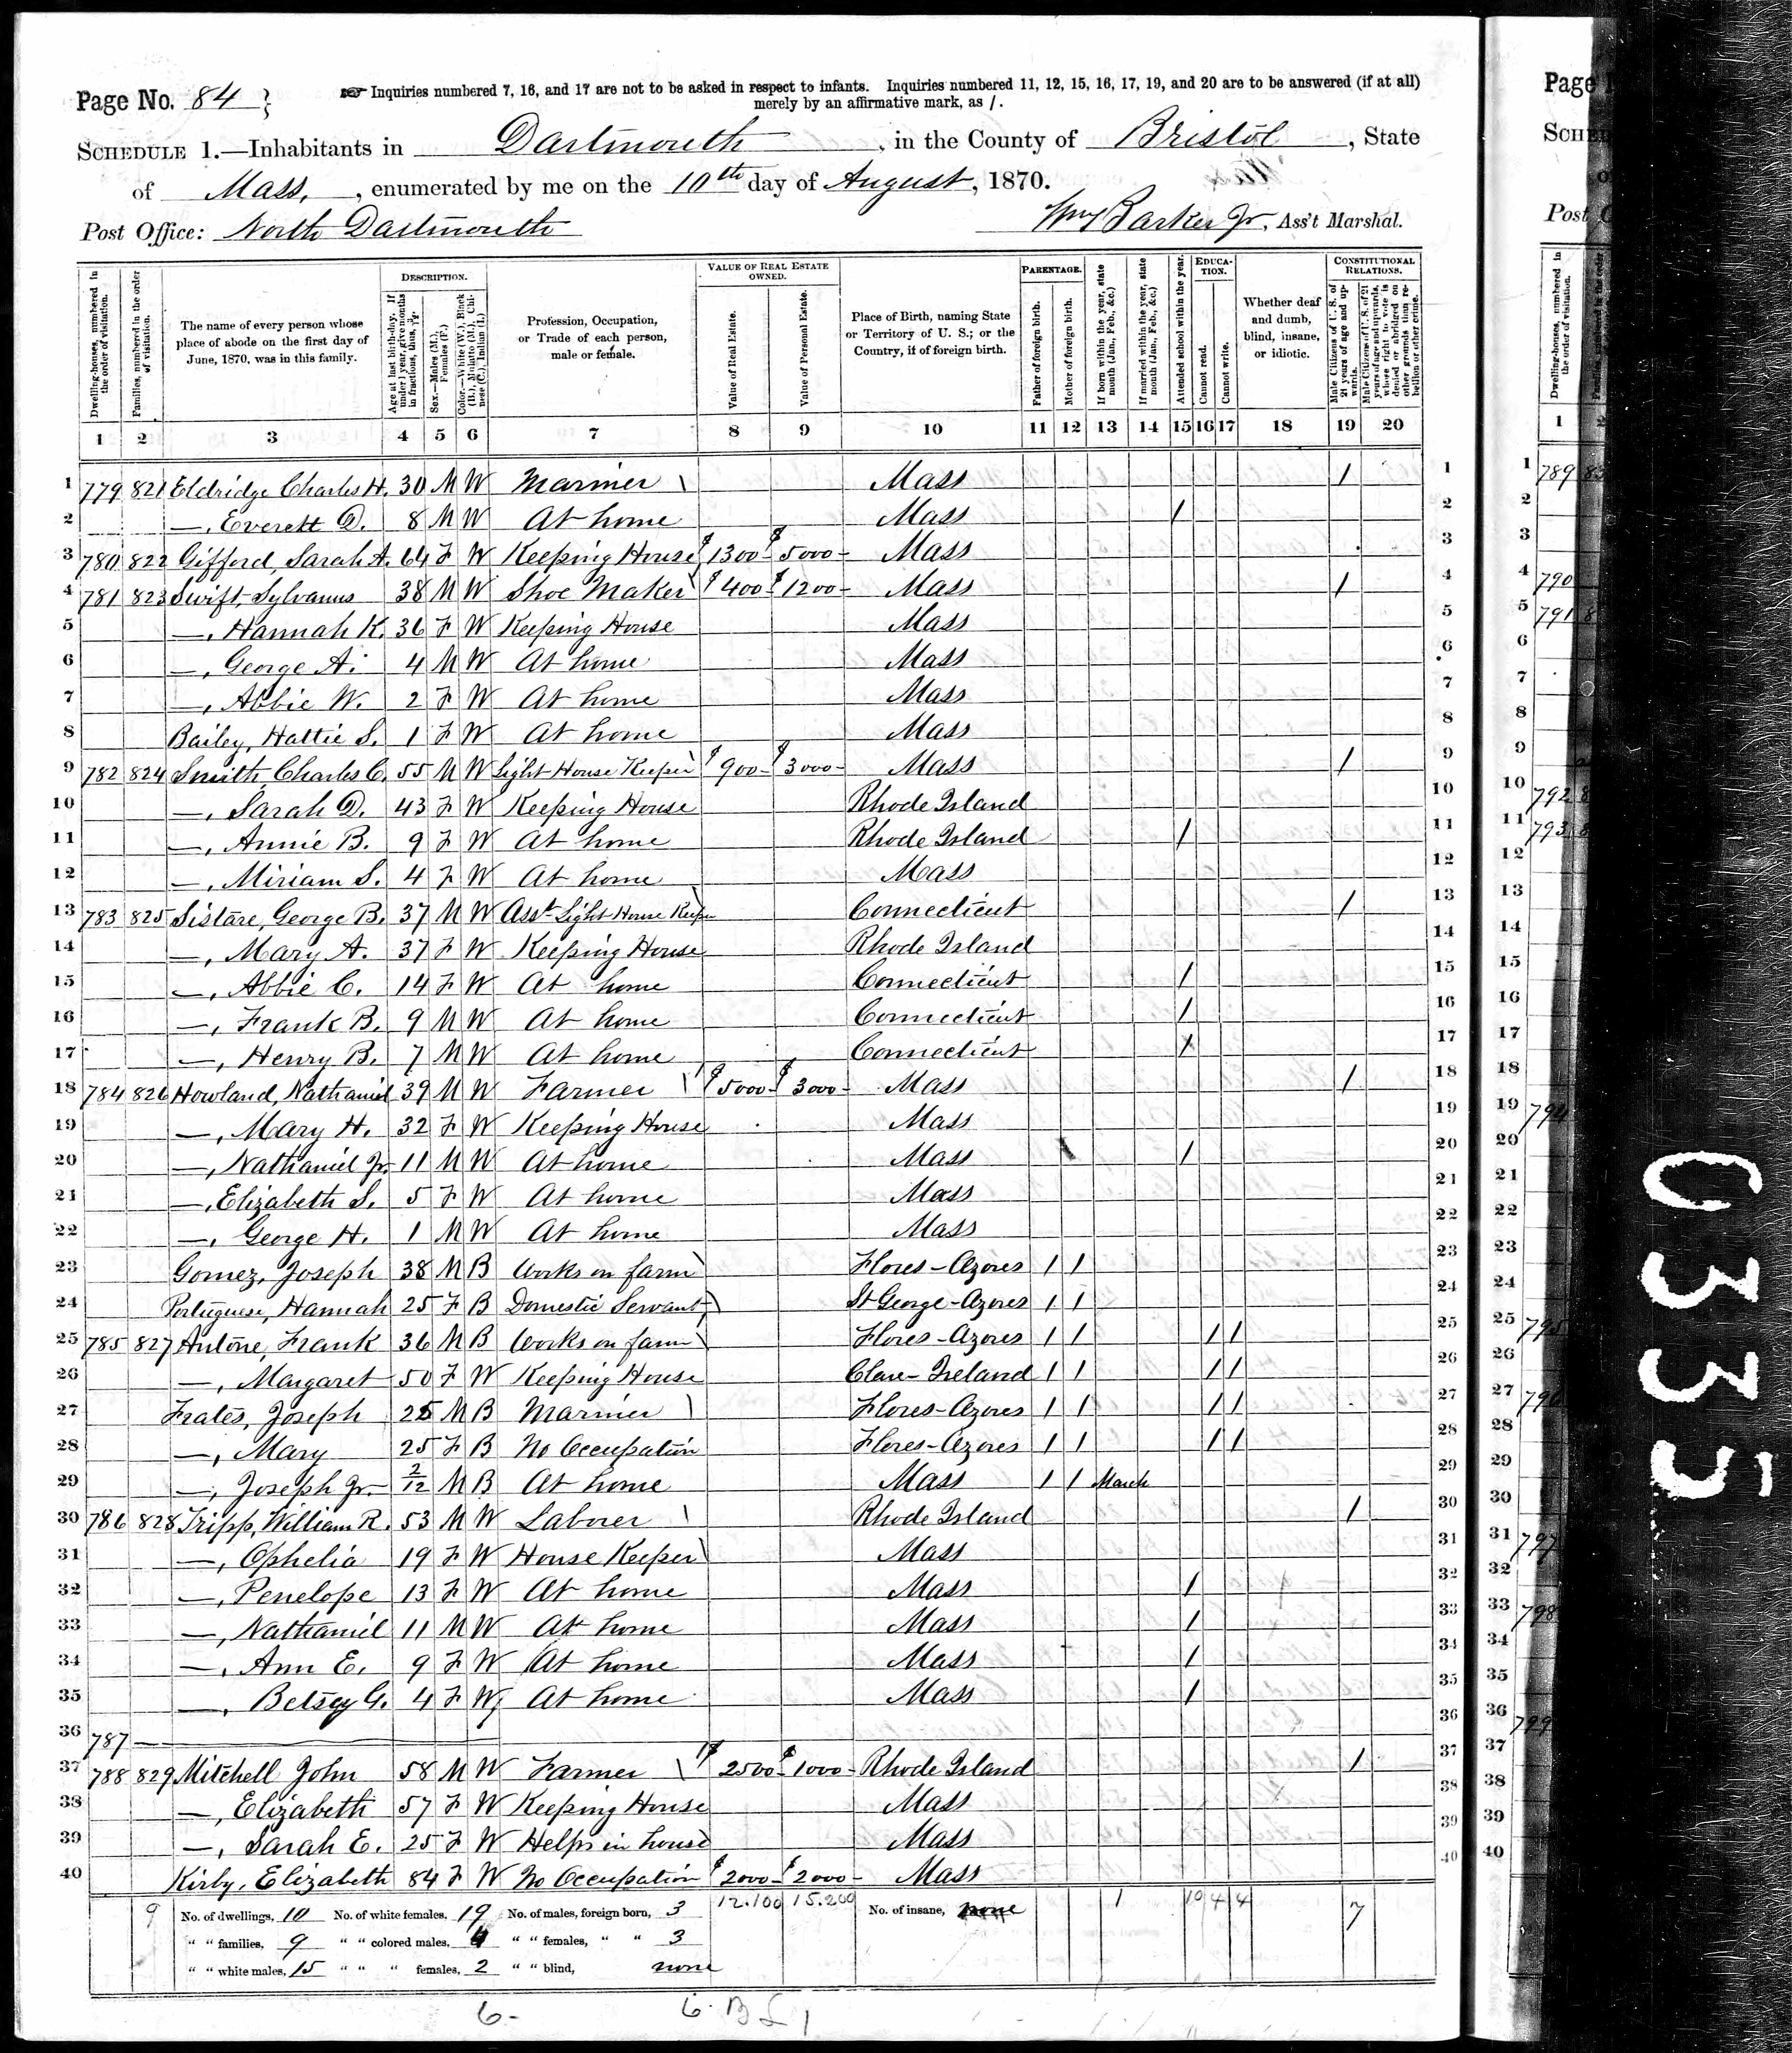 Page No. 84
Inquiries numbered 7, 16, and 17 are not to be asked in respect to infants. Inquiries numbered 11, 12, 15, 16, 17, 19, and 20 are to be answered (if at all)
merely by an affirmative mark, as /.
SCHEDULE 1.—Inhabitants in Dartmouth, in the County of Bristol, State
of Mass, enumerated by me on the 10th day of August, 1870.
Post Office: North Dartmouth Wm Barker Jr, Ass't Marshal.
Dwelling-houses, numbered in the order of visitation.
Families, numbered in the order of visitation.
The name of every person whose place of abode on the first day of June, 1870, was in this family.
DESCRIPTION.
Age at last birth-day. If under 1 year, give months in fractions, thus, 3/12.
Sex.—Males (M.), Females (F.)
Color.—White (W.), Black (B.), Mulatto (M.), Chinese (C.), Indian (I.)
Profession, Occupation, or Trade of each person, male or female.
VALUE OF REAL ESTATE OWNED.
Value of Real Estate.
Value of Personal Estate.
Place of Birth, naming State or Territory of U. S.; or the Country, if of foreign birth.
PARENTAGE.
Father of foreign birth.
Mother of foreign birth.
If born within the year, state month (Jan., Feb., &c.)
If married within the year, state month (Jan., Feb., &c.)
Attended school within the year.
EDUCATION.
Cannot read.
Cannot write.
Whether deaf and dumb, blind, insane, or idiotic.
CONSTITUTIONAL RELATIONS.
Male Citizens of U. S. of 21 years of age and upwards.
Male Citizens of U. S. of 21 years of age and upwards, whose right to vote is denied or abridged on other grounds than rebellion or other crime.
1 2 3 4 5 6 7 8 9 10 11 12 13 14 15 16 17 18 19 20
1 779 821 Eldridge Charles H. 30 M W Mariner Mass / 1
2 —, Everett D. 8 M W At home Mass / 2
3 780 822 Gifford, Sarah A. 64 F W Keeping House $1300 $5000 Mass 3
4 781 823 Swift, Sylvanus 38 M W Shoe Maker $400 $1200 Mass / 4
5 —, Hannah K. 36 F W Keeping House Mass 5
6 —, George A. 4 M W At home Mass 6
7 —, Abbie W. 2 F W At home Mass 7
8 Bailey, Hattie S. 1 F W At home Mass 8
9 782 824 Smith Charles C. 55 M W Light House Keeper $900 $3000 Mass / 9
10 —, Sarah D. 43 F W Keeping House Rhode Island 10
11 —, Annie B. 9 F W At home Rhode Island / 11
12 —, Miriam S. 4 F W At home Mass 12
13 783 825 Sistare, George B. 37 M W Asst Light House Keeper Connecticut / 13
14 —, Mary A. 37 F W Keeping House Rhode Island 14
15 —, Abbie C. 14 F W At home Connecticut / 15
16 —, Frank B. 9 M W At home Connecticut / 16
17 —, Henry B. 7 M W At home Connecticut / 17
18 784 826 Howland, Nathaniel 39 M W Farmer $5000 $3000 Mass / 18
19 —, Mary H. 32 F W Keeping House Mass 19
20 —, Nathaniel Jr. 11 M W At home Mass / 20
21 —, Elizabeth S. 5 F W At home Mass 21
22 —, George H. 1 M W At home Mass 22
23 Gomez, Joseph 38 M B Works on farm Flores-Azores / / 23
24 Portuguese, Hannah 25 F B Domestic Servant St George-Azores / / 24
25 785 827 Antone, Frank 36 M B Works on farm Flores-Azores / / / / 25
26 —, Margaret 50 F W Keeping House Clare-Ireland / / / / 26
27 Frates, Joseph 25 M B Mariner Flores-Azores / / / / 27
28 —, Mary 25 F B No Occupation Flores-Azores / / / / 28
29 —, Joseph Jr. 2/12 M B At home Mass / / March 29
30 786 828 Tripp, William R. 53 M W Laborer Rhode Island / 30
31 —, Ophelia 19 F W House Keeper Mass 31
32 —, Penelope 13 F W At home Mass / 32
33 —, Nathaniel 11 M W At home Mass / 33
34 —, Ann E. 9 F W At home Mass / 34
35 —, Betsey G. 4 F W At home Mass / 35
36 787 — 36
37 788 829 Mitchell John 58 M W Farmer $2500 $1000 Rhode Island / 37
38 —, Elizabeth 57 F W Keeping House Mass 38
39 —, Sarah E. 25 F W Helps in house Mass 39
40 Kirby, Elizabeth 84 F W No Occupation $2000 $2000 Mass 40
9 No. of dwellings, 10 No. of white females, 19 No. of males, foreign born, 3 12.100 15.200 No. of insane, none 1 10 4 4 7
" " families, 9 " " colored males, 4 " " females, " " 3
" " white males, 15 " " " females, 2 " " blind, none
6- 6. B
Page
SCHE
Post
789
790
791
792
793
794
795
796
797
798
799
0335